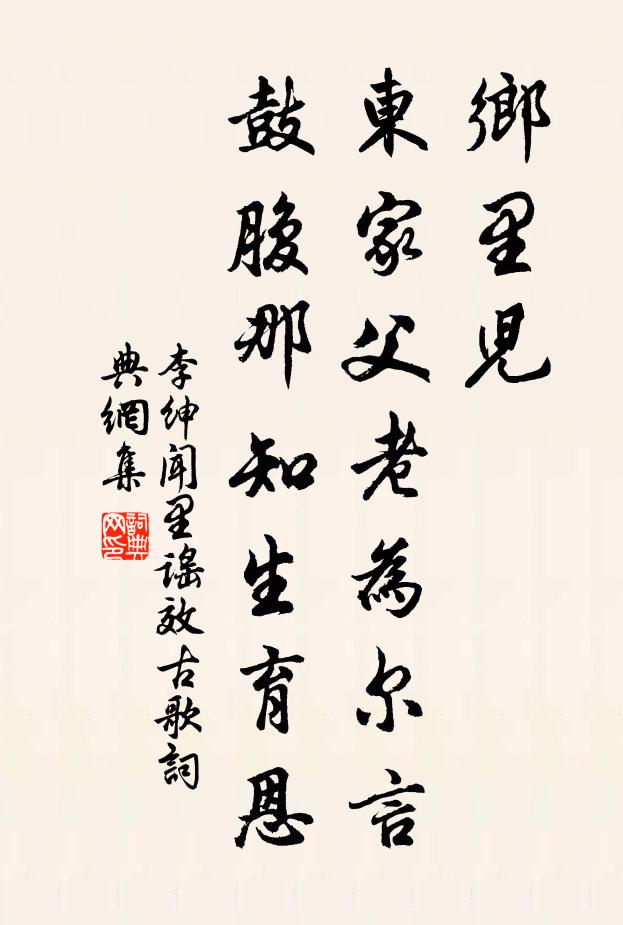 鄉里兒
東家父老為尔言
鼓腹那知生育恩
李紳闻里謠效古歌
詞典網集
詞典網印